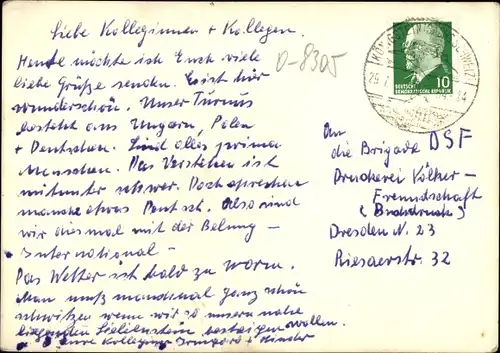 Liebe Kolleginnen + Kollegen.
Heute möchte ich Euch viele
liebe Grüße senden. Es ist hier
wunderschön. Unser Turnus
besteht aus Ungarn, Polen
+ Deutschen. Sind alles prima
Menschen. Das Verstehen ist
mitunter schwer. Doch sprechen
manche etwas Deutsch. Also sind
wir diesmal mit der Belung –
International –
Das Wetter ist bald zu warm.
Man muß manchmal ganz schön
schwitzen wenn wir so unsern nahe
liegenden Lilienstein besteigen wollen.
Eure Kollegin Irmgard + Kinder
O-8305
KÖNIGSTEIN (SÄCHS SCHWEIZ)
10
DEUTSCHE
DEMOKRATISCHE REPUBLIK
An
die Brigade DSF
Druckerei Völker-
Freundschaft
(Buchdruck)
Dresden N. 23
Riesaerstr. 32